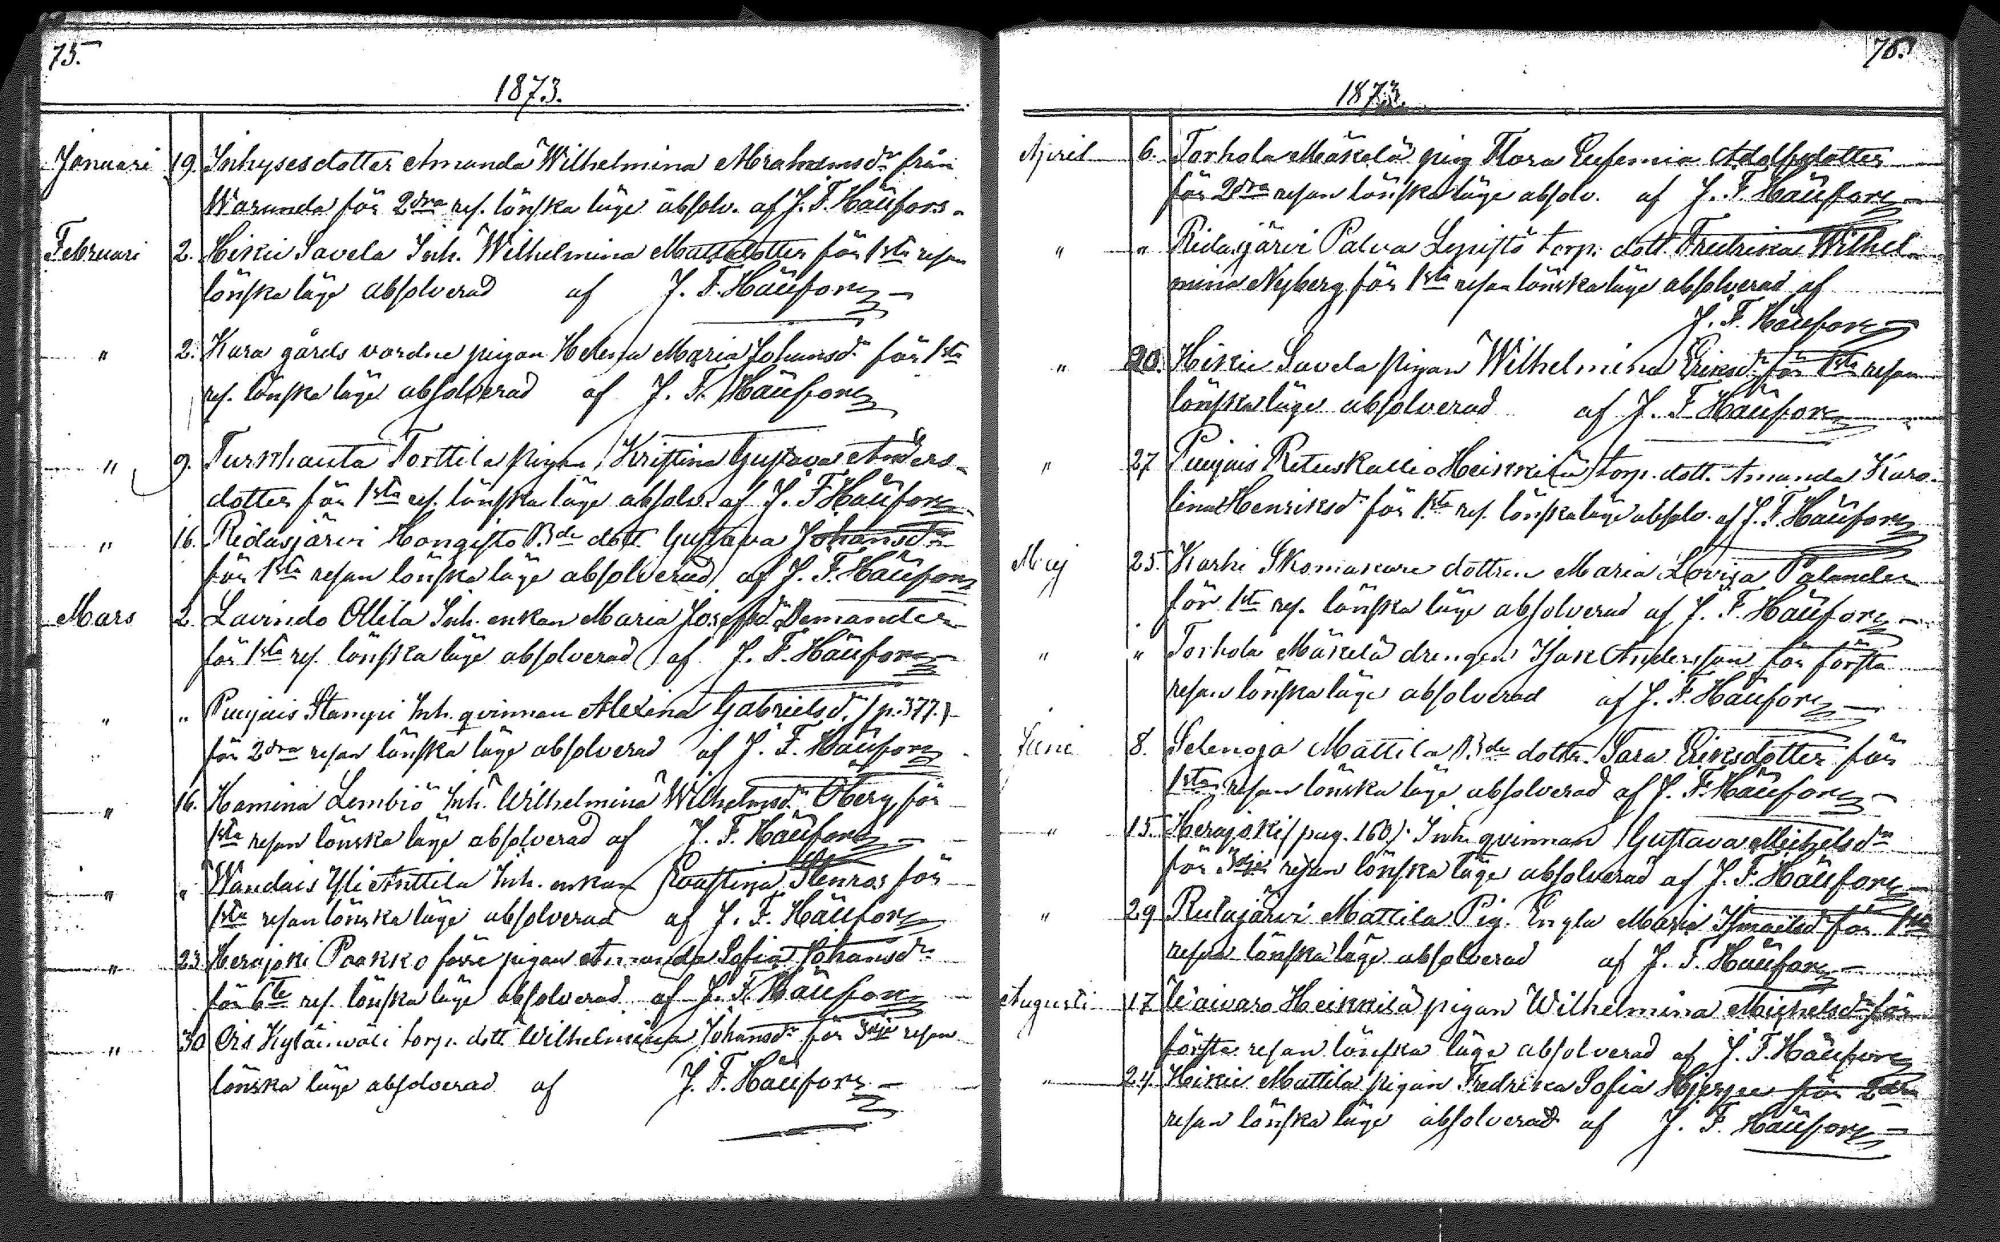 75.
1873.
Januari 19. Inhysesdotter Amanda Wilhelmina Abrahamsdr från
Warunda för 2dra res. lönska läge absolv. af J. F. Häüfors
Februari 2. Hikiä Savela Inh. Wilhelmina Mattsdotter för 1sta resan
lönska läge absolverad af J. F. Häüfors
" 2. Kara gårds vordne pigan Helena Maria Johansdr för 1sta
res. lönska läge absolverad af J. F. Häüfors
" 9. Turkhauta Torttila pigan Kristina Gustava Anders-
dotter för 1sta res. lönska läge absolv. af J. F. Häüfors
" 16. Ridasjärvi Hongisto Bde dott. Gustava Johansdr
för 1sta resan lönska läge absolverad af J. F. Häüfors
Mars 2. Lavindo Ollila Inh. enkan Maria Josefsdr Demander
för 1sta res. lönska läge absolverad af J. F. Häüfors
" " Puujais Stampi Inh. qvinnan Alexina Gabrielsd. (p. 377.)
för 2dra resan lönska läge absolverad af J. F. Häüfors
" 16. Hamina Lembiö Inh. Wilhelmina Wilhelmsdr Öberg för
1sta resan lönska läge absolverad af J. F. Häüfors
" " Wandais Yli Anttila Inh. enkan Eva Stina Stenros för
1sta resan lönska läge absolverad af J. F. Häüfors
" 23. Herajoki Paakko förre pigan Amanda Sofia Johansdr
för 6te res. lönska läge absolverad af J. F. Häüfors
" 30 Ois Kylänwäli torp. dott. Wilhelmina Johansdr för 3dje resan
lönska läge absolverad af J. F. Häüfors
76.
1873.
April 6. Torhola Mäkelä pig. Flora Eufemia Adolfsdotter
för 2dra resan lönska läge absolv. af J. F. Häüfors
" " Ridasjärvi Palva Lepistö torp. dott. Fredrika Wilhel-
mina Nyberg för 1sta resan lönska läge absolverad af
J. F. Häüfors
" 20. Hikiä Savela pigan Wilhelmina Eriksdr för 1sta resan
lönska läge absolverad af J. F. Häüfors
" 27 Puujais Retuskallio Heikkilä torp. dott. Amanda Karo-
lina Henriksdr för 1sta res. lönska läge absolv. af J. F. Häüfors
Maj 25. Karhi Skomakare dottren Maria Lovisa Palander
för 1sta res. lönska läge absolverad af J. F. Häüfors
" " Torhola Mäkelä drengen Isak Andersson för första
resan lönska läge absolverad af J. F. Häüfors
Juni 8. Selenoja Mattila Bde dottr. Sara Eriksdotter för
1sta resan lönska läge absolverad af J. F. Häüfors
" 15. Herajoki (pag. 160). Inh. qvinnan Gustava Michelsdr
för 3dje resan lönska läge absolverad af J. F. Häüfors
" 29 Rutajärvi Mattila Pig. Engla Maria Ismaelsd för 1sta
resan lönska läge absolverad af J. F. Häüfors
Augusti 17. Waivaro Heikkilä pigan Wilhelmina Michelsdr för
första resan lönska läge absolverad af J. F. Häüfors
" 24. Hikiä Mattila pigan Fredrica Sofia Hjerpe för 2dra
resan lönska läge absolverad af J. F. Häüfors